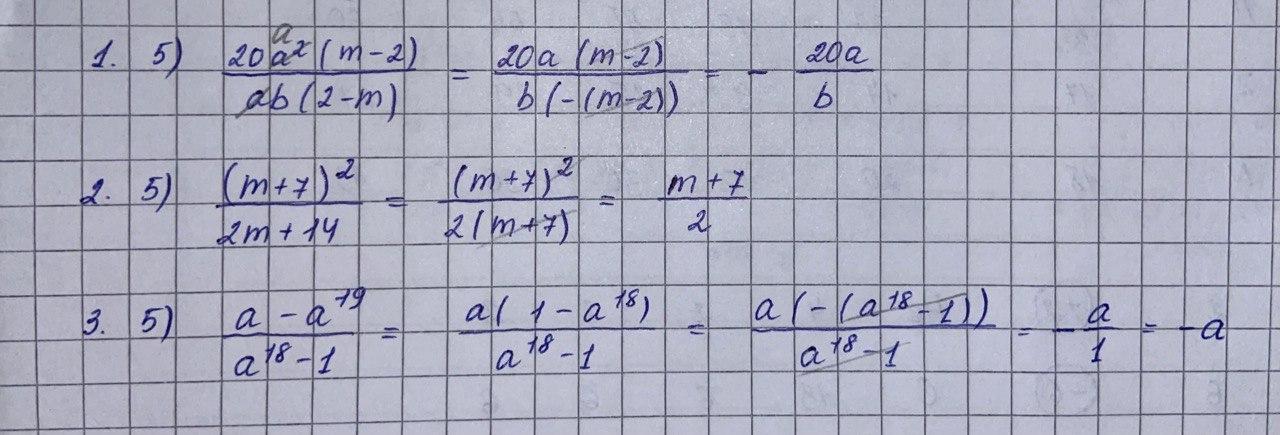 1. 5) \frac{20a^2(m-2)}{ab(2-m)} = \frac{20a(m-2)}{b(-(m-2))} = -\frac{20a}{b}
2. 5) \frac{(m+7)^2}{2m+14} = \frac{(m+7)^2}{2(m+7)} = \frac{m+7}{2}
3. 5) \frac{a-a^{19}}{a^{18}-1} = \frac{a(1-a^{18})}{a^{18}-1} = \frac{a(-(a^{18}-1))}{a^{18}-1} = -\frac{a}{1} = -a